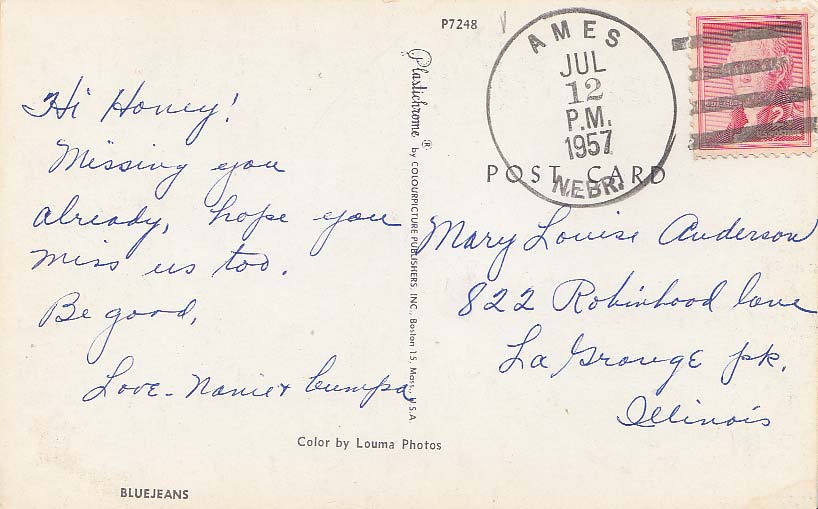 P7248
AMES
JUL
12
P.M.
1957
NEBR.
2¢
POST CARD
Hi Honey!
Missing you
already, hope you
miss us too.
Be good,
Love - Nanie + Cumpa
Plastichrome ® by COLOURPICTURE PUBLISHERS, INC., Boston 15, Mass., U.S.A
Mary Louise Anderson
822 Robinhood lane
La Grange pk.
Illinois
Color by Louma Photos
BLUEJEANS